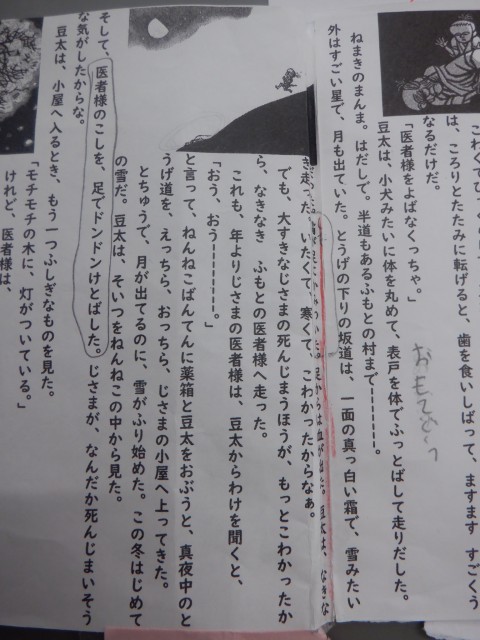 こわくてびっく
は、ころりとたたみに転げると、歯を食いしばって、ますます すごくう
なるだけだ。
「医者様をよばなくっちゃ。」
豆太は、小犬みたいに体を丸めて、表戸を体でふっとばして走りだした。
おもてど
ねまきのまんま。はだしで。半道もあるふもとの村まで――――。
外はすごい星で、月も出ていた。とうげの下りの坂道は、一面の真っ白い霜で、雪みたい
足からは血が出た。豆太は、なきな
き走った。いたくて、寒くて、こわかったからなぁ。
でも、大すきなじさまの死んじまうほうが、もっとこわかったか
ら、なきなき ふもとの医者様へ走った。
これも、年よりじさまの医者様は、豆太からわけを聞くと、
「おう、おう――――。」
と言って、ねんねこばんてんに薬箱と豆太をおぶうと、真夜中のと
うげ道を、えっちら、おっちら、じさまの小屋へ上ってきた。
とちゅうで、月が出てるのに、雪がふり始めた。この冬はじめて
の雪だ。豆太は、そいつをねんねこの中から見た。
そして、医者様のこしを、足でドンドンけとばした。じさまが、なんだか死んじまいそう
な気がしたからな。
豆太は、小屋へ入るとき、もう一つふしぎなものを見た。
「モチモチの木に、灯がついている。」
けれど、医者様は、